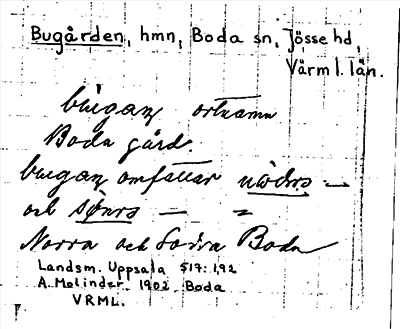 Bugården, hmn, Boda sn, Jösse hd,
Värml. län.
bu̇gaɳ ortnamn
Boda gård.
bugaɳ omfattar nɷdrɷ —
och sønrɷ — =
Norra och Södra Boda
Landsm. Uppsala 517: 192
A. Melinder 1902 Boda
VRML.